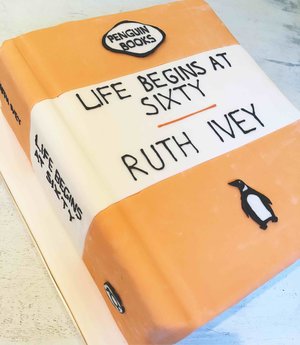 PENGUIN
BOOKS
LIFE BEGINS AT
SIXTY
RUTH IVEY
LIFE BEGINS
AT SIXTY
RUTH IVEY